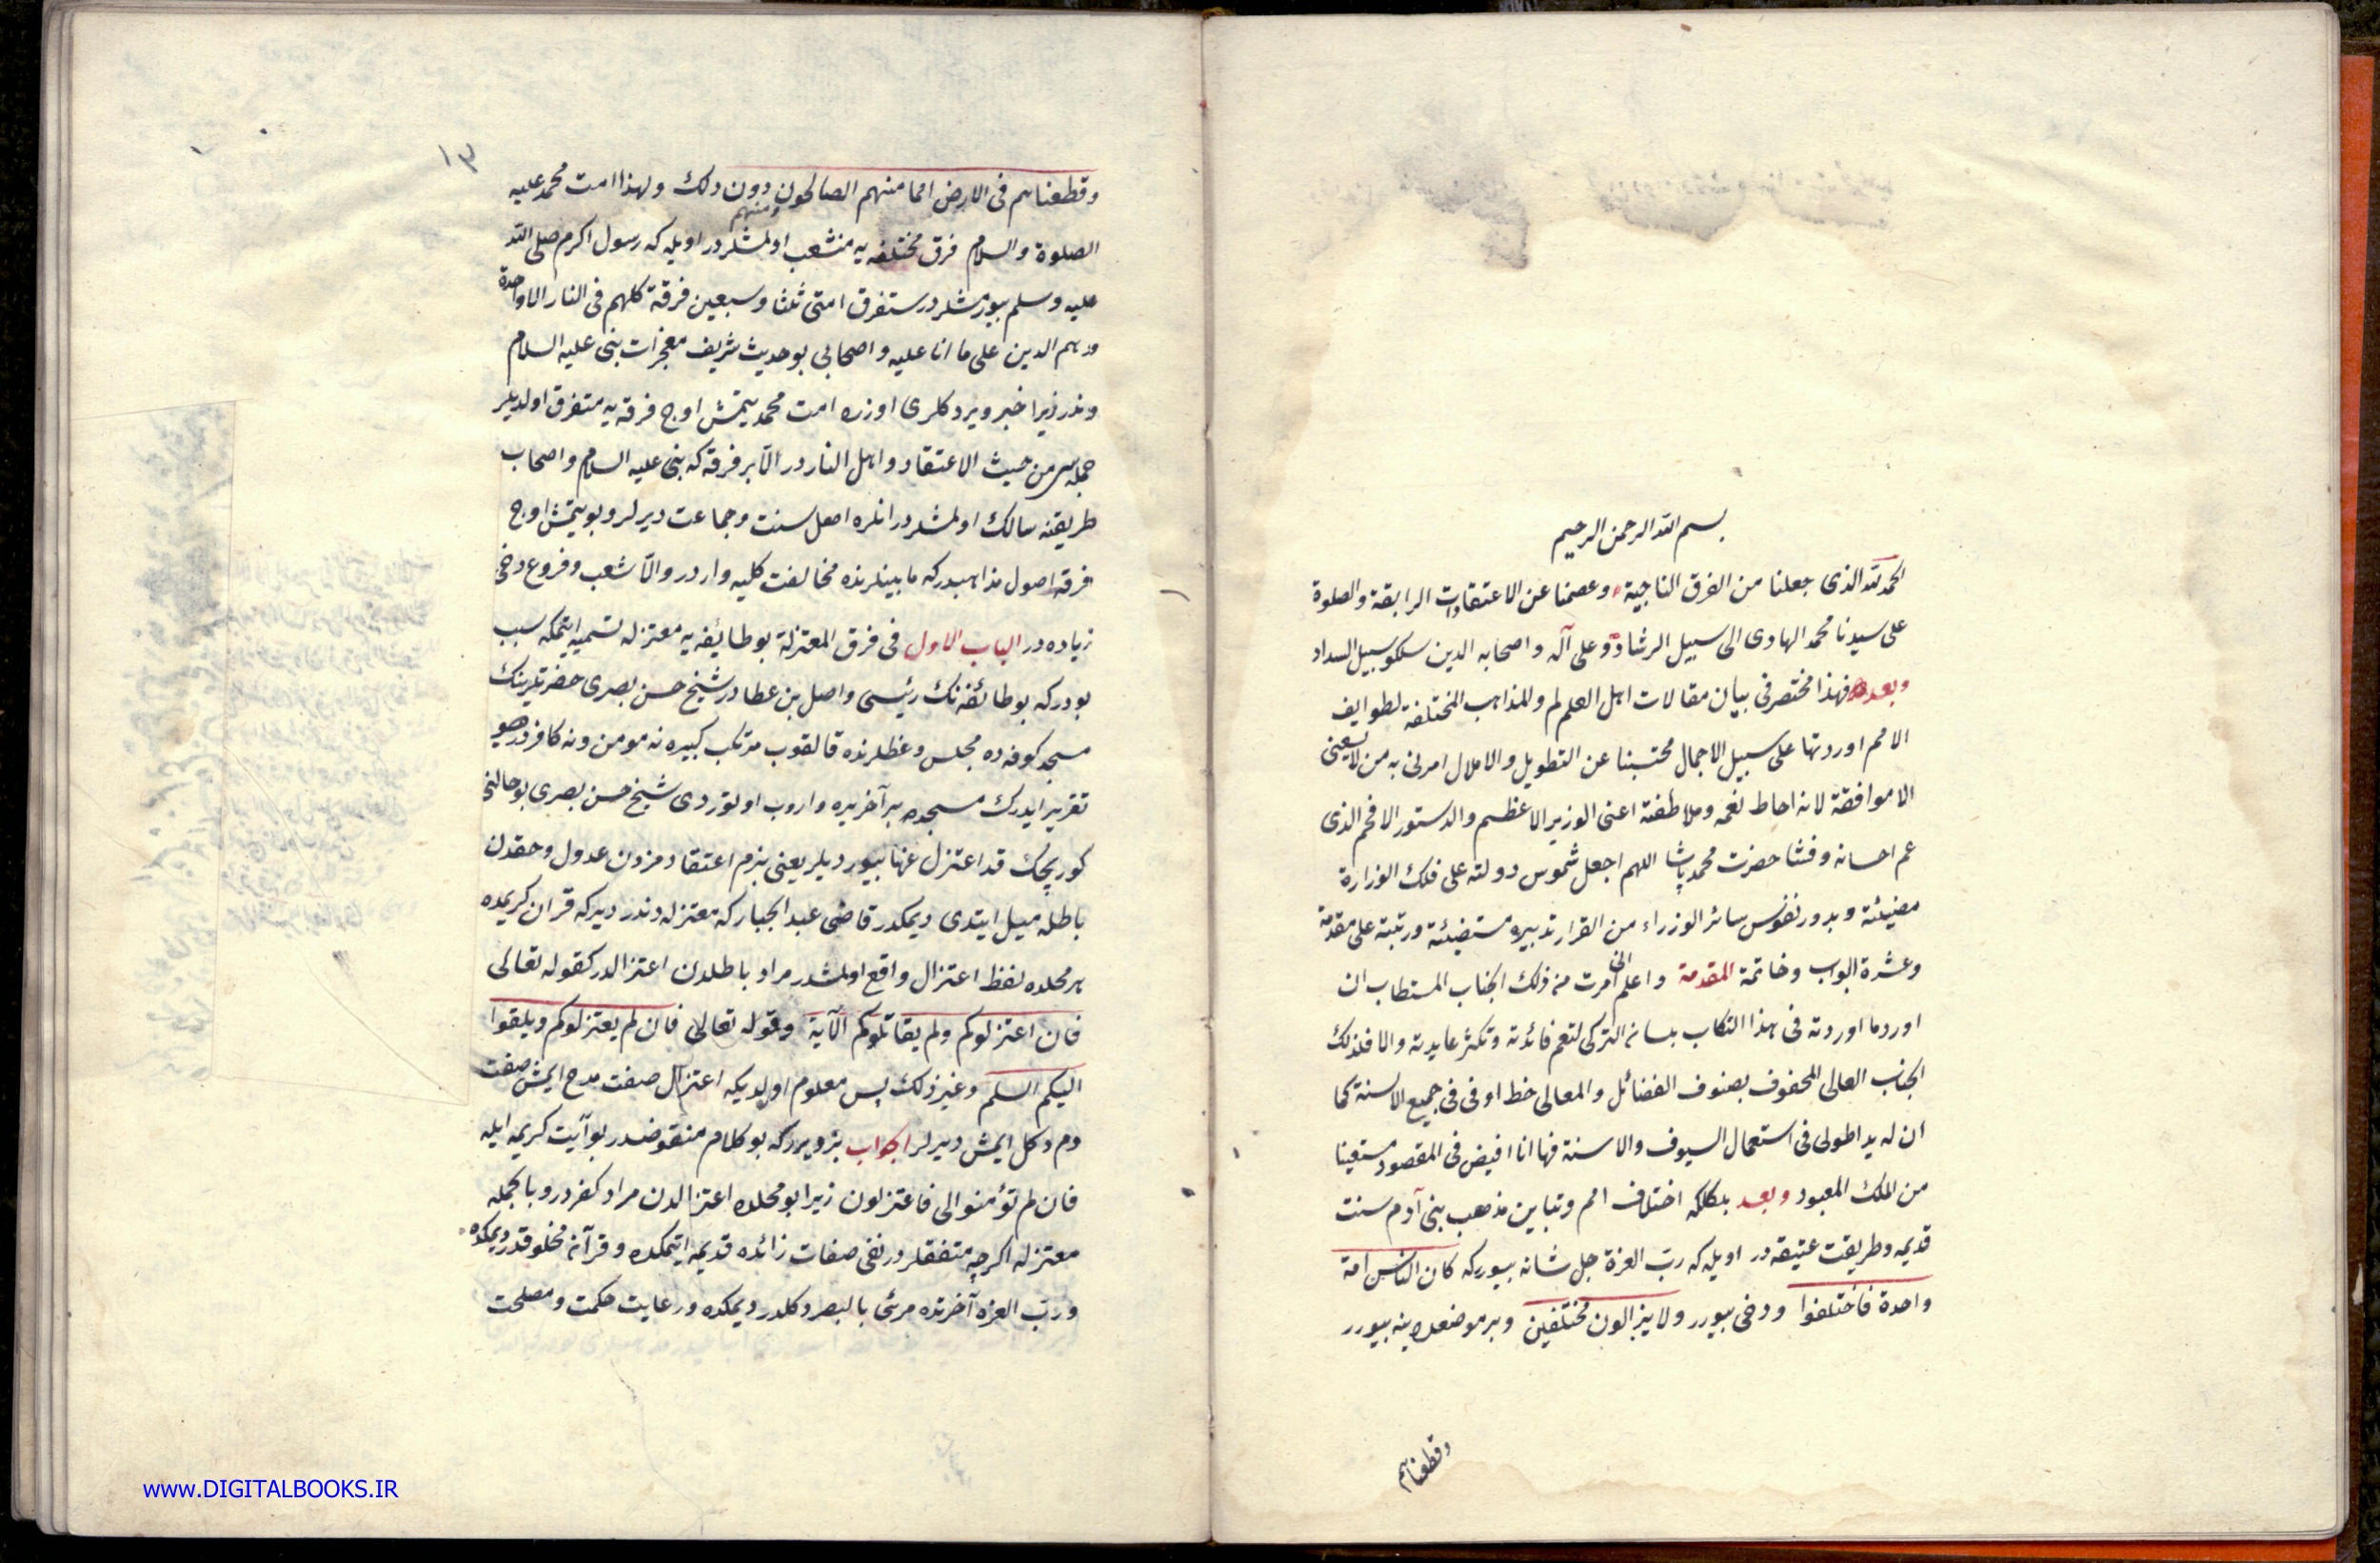 بسم الله الرحمن الرحيم
الحمد لله الذى جعلنا من الفرق الناجية وعصمنا عن الاعتقادات الرابقة والصلوة
على سيدنا محمد الهادى الى سبيل الرشاد وعلى آله واصحابه الدين سلكو سبيل السداد
وبعده فهذا مختصر فى بيان مقالات اهل العلم لم وللمذاهب المختلفة لطوايف
الامم اوردتها على سبيل الاجمال مجتنبنا عن التطويل والاملال امرنى به من لايعنى
الا موافقة لانه احاط نعمه وملاطفته اعنى الوزير الاعظم والدستور الافخم الذى
عم احسانه وفشا حضرت محمد پاشا اللهم اجعل شموس دولته على فلك الوزارة
مضيئة وبدور نفوس سائر الوزراء من القرار تدبيره مستضيئة ورتبته على مقدمة
وعشرة ابواب وخاتمة المقدمة واعلم انى امرت من ذلك الجناب المستطاب ان
اورد ما اوردته فى هذا الكتاب بلسان التركى لتعم فائدته وتكثر عايدته والا فلذلك
الجناب العالى المحفوف بصنوف الفضائل والمعالى خط اوفى فى جميع الالسنة كما
ان له يد اطولى فى استعمال السيوف والاسنة فها انا افيض فى المقصود مستعينا
من الملك المعبود وبعد بلكلكه اختلاف امم وتباين مذهب بنى آدم سنت
قديمه وطريقت عتيقه در اويله كه رب العزة جل شانه بيوررکه كان الناس امة
واحدة فاختلفوا ودخى بيورر ولا يزالون مختلفين وبر موضعده ينه بيورر
وقطعناهم
١٣
وقطعناهم فى الارض امما منهم الصالحون ومنهم دون ذلك ولهذا امت محمد عليه
الصلوة والسلام فرق مختلفه يه منشعب اولمشلردر اويله كه رسول اكرم صلى الله
عليه وسلم بيورمشلردر ستفرق امتى ثلثا وسبعين فرقة كلهم فى النار الا واحدة
وهم الدين على ما انا عليه واصحابى بو حديث شريف معجزات بنى عليه السلام
وندر زيرا خبر ويردكلرى اوزره امت محمد يتمش اوج فرقه يه متفرق اولديلر
جمله سى من حيث الاعتقاد واهل النار در الا بر فرقه كه بنى عليه السلام واصحاب
طريقنه سالك اولمشلردر انلره اهل سنت وجماعت ديرلر وبو يتمش اوج
فرقه اصول مذاهبدركه مابينلرنده مخالفت كليه واردر والا شعب وفروع دخى
زياده در الباب الاول فى فرق المعتزلة بو طائفه يه معتزله تسميه ايتمكه سبب
بودركه بو طائفه نك رئيسى واصل بن عطادر شيخ حسن بصرى حضرتلرينك
مسجد كوفه ده مجلس وعظلرنده قالقوب مرتكب كبيره نه مومن ونه كافردر ديو
تقرير ايدرك مسجده بر آخر يره واروب اوتوردى شيخ حسن بصرى بو حالنى
كوريجك قد اعتزل عنها بيورديلر يعنى بزم اعتقادمزدن عدول وحقدن
باطله ميل ايتدى ديمكدر قاضى عبد الجبار كه معتزله دندر ديركه قران كريمده
هر محلده لفظ اعتزال واقع اولمشدر مراد باطلدن اعتزالدر كقوله تعالى
فان اعتزلوكم ولم يقاتلوكم الآية وقوله تعالى فان لم يعتزلوكم ويلقوا
اليكم السلم وغير ذلك پس معلوم اولديكه اعتزال صفت مدح ايمش صفت
ذم دكل ايمش ديرلر الجواب بز ديرزكه بو كلام منقوضدر بو آيت كريمه ايله
فان لم تؤمنوا لى فاعتزلون زيرا بو محلده اعتزالدن مراد كفردر وبالجمله
معتزله اكرچه متفقلردر نفى صفات زائده قديمه ايتمكده وقرآنه مخلوقدر ديمكده
ورب العزه آخرتده مرئى بالبصر دكلدر ديمكده ورعايت حكمت ومصلحت
www.DIGITALBOOKS.IR